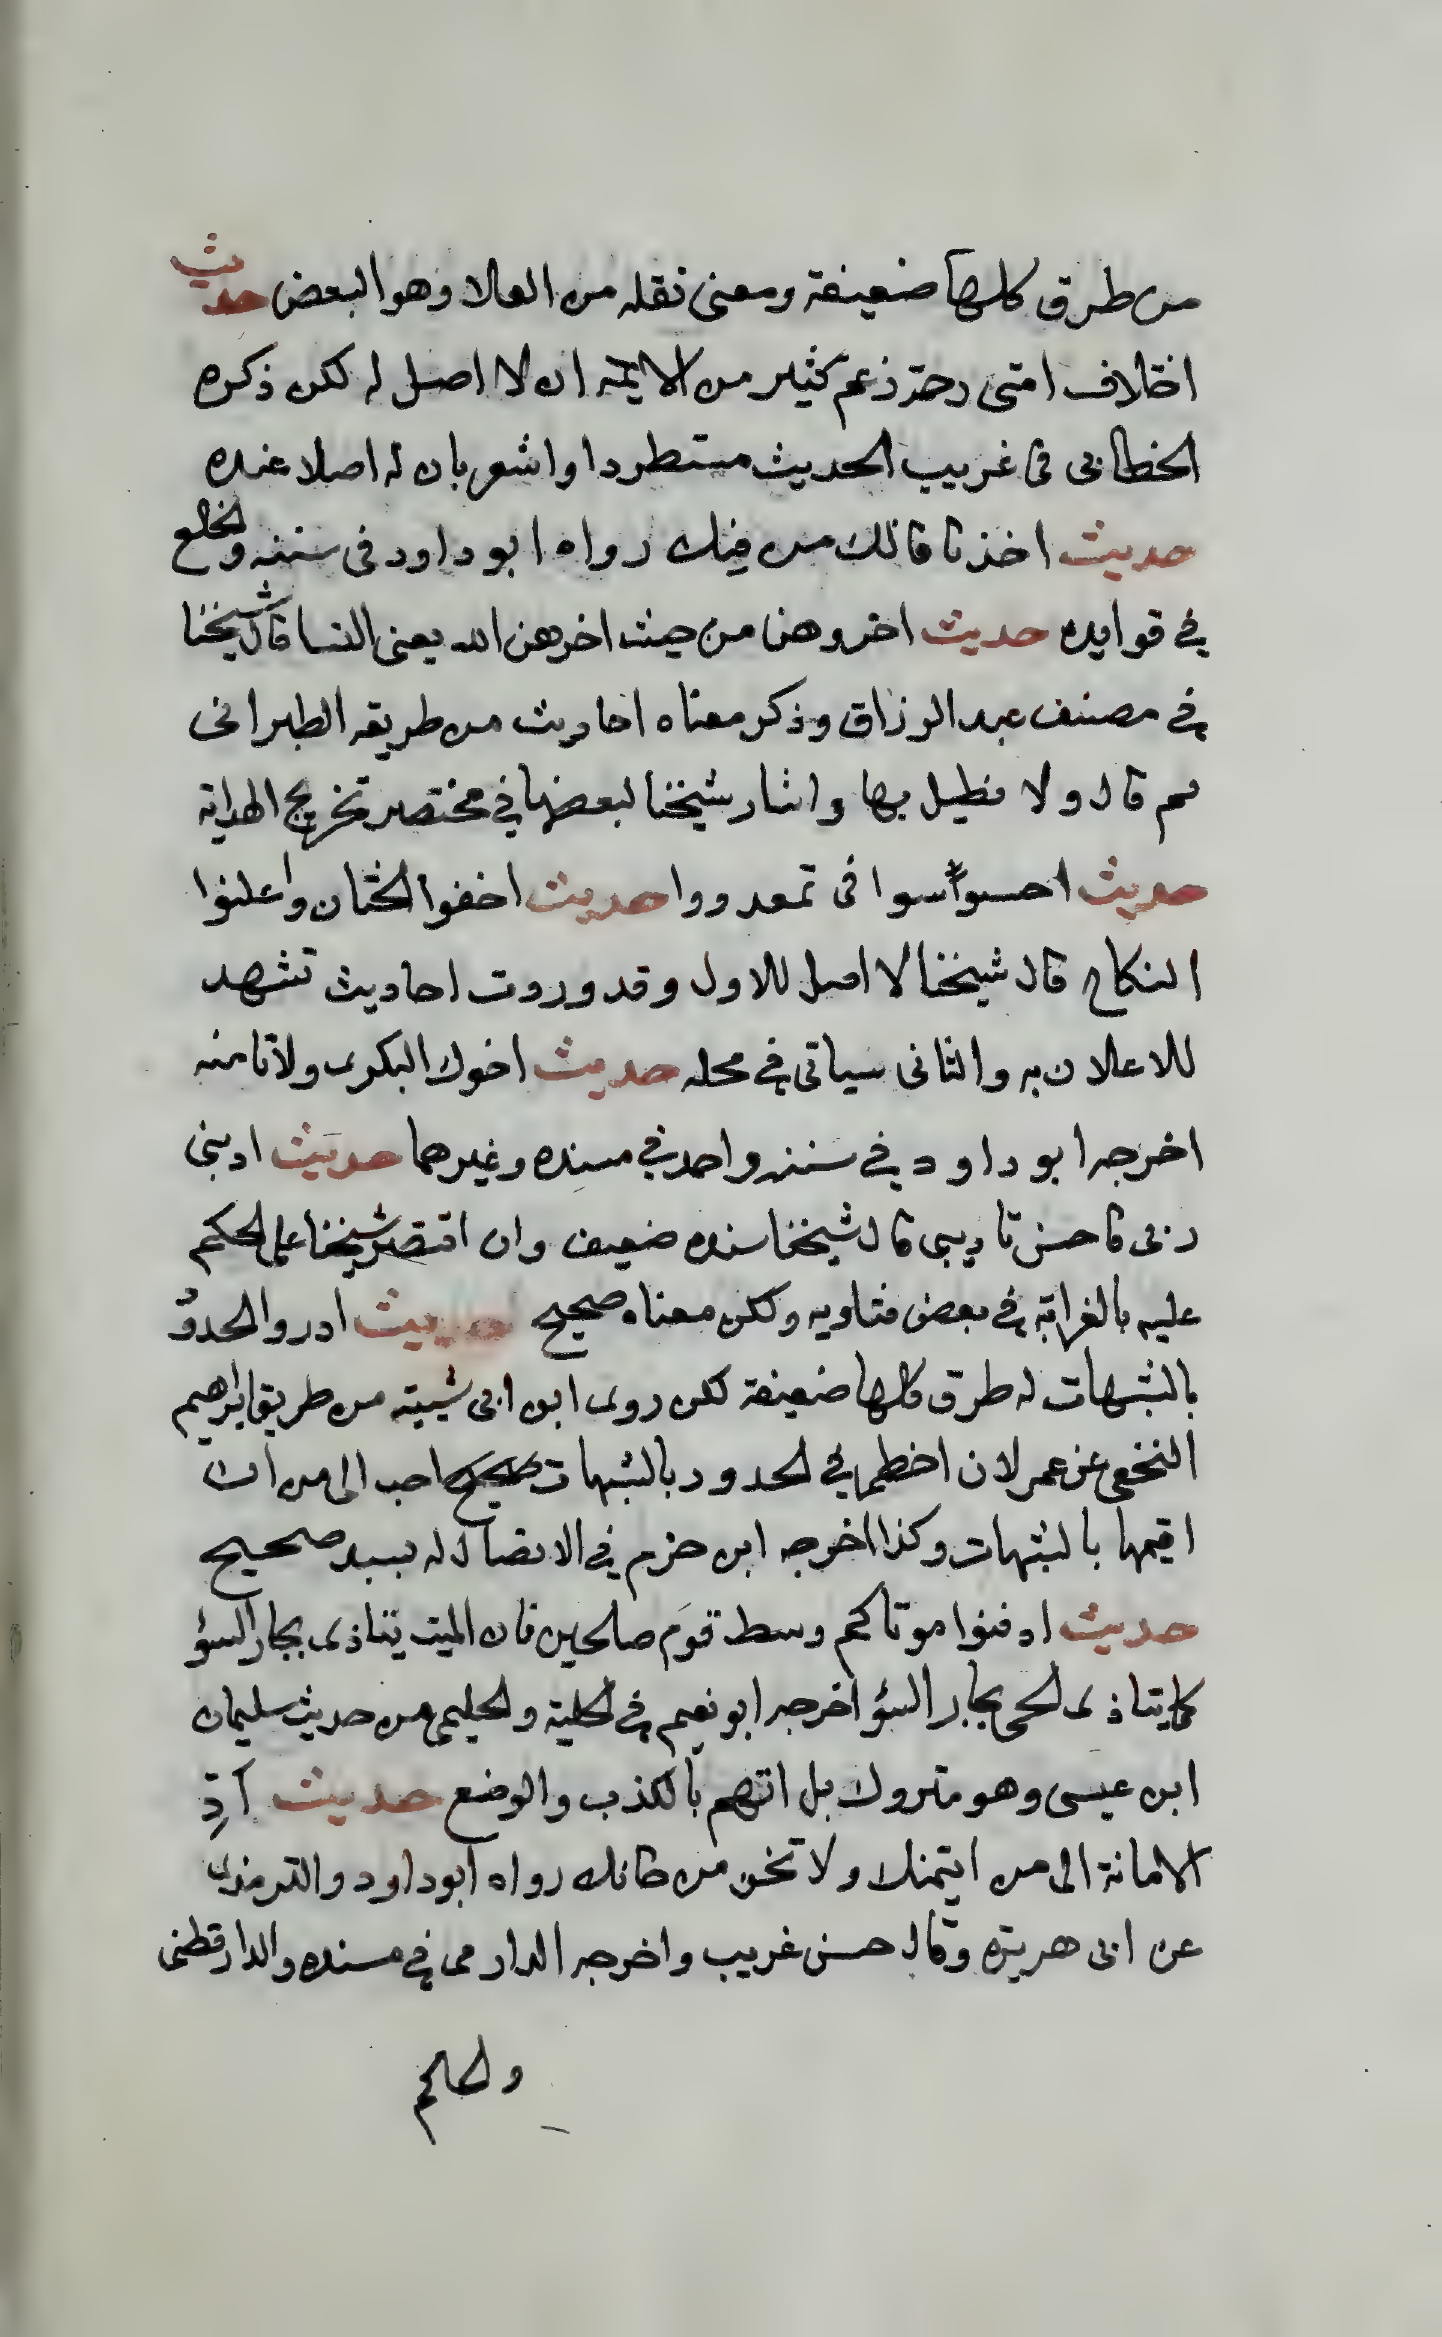 من طرق كلها ضعيفة ومعنى تقله من العلا وهو البعض حديث
اختلاف امتى رحمة زعم كثير من الايمة ان لا اصل له لكن ذكره
الخطابى فى غريب الحديث مستطردا واشعر بان له اصلا عنده
حديث اخذنا فالك من فيك رواه ابو داود فى سننه والخلع
في فوايده حديث اخروهن من حيث اخرهن الله يعنى النسا قال شيخنا
في مصنف عبد الرزاق وذكر معناه احاديث من طريقه الطبرانى
ثم قال ولا نطيل بها واشار شيخنا لبعضها في مختصر تخريج الهداية
حديث فى تمعددوا حديث اخفوا الختان واعلنوا
النكاح قال شيخنا لا اصل للاول وقد وردت احاديث تشهد
للاعلان به والثانى سياتى في محله حديث اخوك البكرى ولا تامنه
اخرجه ابو داود في سننه واحمد في مسنده وغيرهما حديث ادبنى
ربى فاحسن تاديبى قال شيخنا سنده ضعيف وان اقتصر شيخنا على الحكم
عليه بالغرابة في بعض فتاويه ولكن معناه صحيح حديث ادروا الحدود
بالشبهات له طرق كلها ضعيفة لكن روى ابن ابى شيبة من طريق ابرهيم
النخعى عن عمر لان اخطى في الحدود بالشبهات احب الى من ان
اقيمها بالشبهات وكذا اخرجه ابن حزم في الايصال له بسند صحيح
حديث ادفنوا موتاكم وسط قوم صالحين فان الميت يتاذى بجار السؤ
كما يتاذى الحى بجار السؤ اخرجه ابو نعيم في الحلية والخليلى من حديث سليمان
ابن عيسى وهو متروك بل اتهم بالكذب والوضع حديث ادِّ
الامانة الى من ايتمنك ولا تخن من خانك رواه ابو داود والترمذى
عن ابى هريرة وقال حسن غريب واخرجه الدارمى في مسنده والدارقطنى
والحاكم